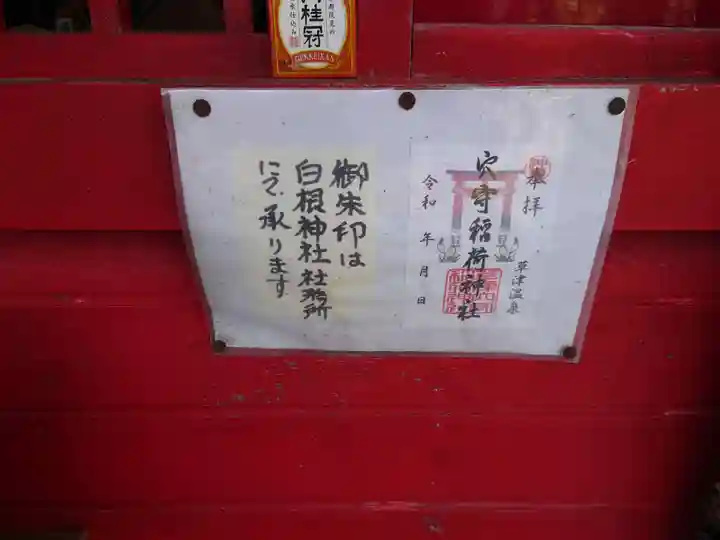 桂冠
GEKKEIKAN
奉拝
穴守稲荷神社
草津温泉
令和 年 月 日
御朱印は
白根神社社務所
にて承ります